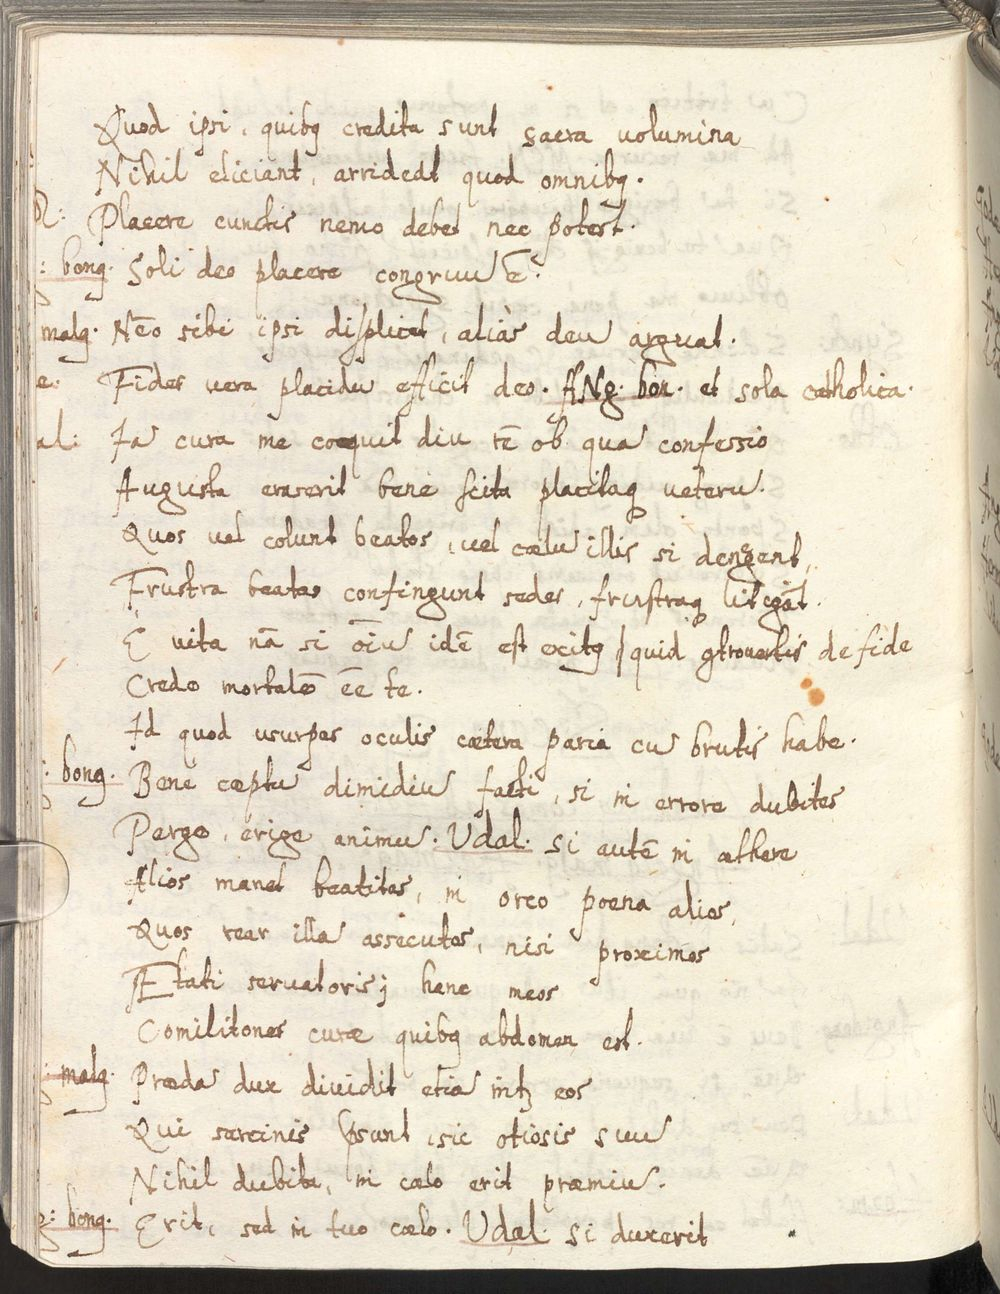 Quod ipsi, quibq credita sunt sacra uolumina
Nihil eliciant, arridedt quod omnibq.
Placere cunctis nemo debet nec potest.
: bonq. Soli deo placere congruu ē.
malq. Nēo sibi ipsi displicet, aliàs deu arguat.
e: Fides uera placidu efficit deo. ANg: bon. et sola catholica.
al: Ia cura me coquit diu tē ob qua confessio
Augusta eraserit bene scita placitaq ueteru.
Quos uel colunt beatos, uel cælu illis si denȩent,
Frustra beatas confingunt sedes, frustraq litigāt.
E uita nā si oīu idē est exitq / quid gtrouertis de fide
Credo mortalē ēe te.
Id quod usurpas oculis cætera paria cu brutis habe.
: bonq. Bene cæptu dimidiu facti, si in errore dubites
Perge, erige animu. Udal. Si autē in æthere
Alios manet beatitas, in orco poena alios,
Quos rear illa assecutos, nisi proximos
Etati seruatoris; hanc meos
Comilitones curæ quibq abdomen est.
: malq. Præda dux diuidit etia intz eos
Qui sarcinis psunt, sic otiosis suu
Nihil dubita, in cælo erit præmiu.
: bonq. Erit, sed in tuo cælo. Udal Si duxerit